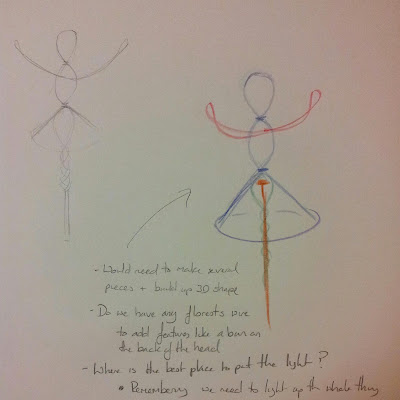 - Would need to make several
pieces + build up 3D shape
- Do we have any florists wire
to add features like a bun on
the back of the head
- Where is the best place to put the light?
* Remembering we need to light up th whole thing